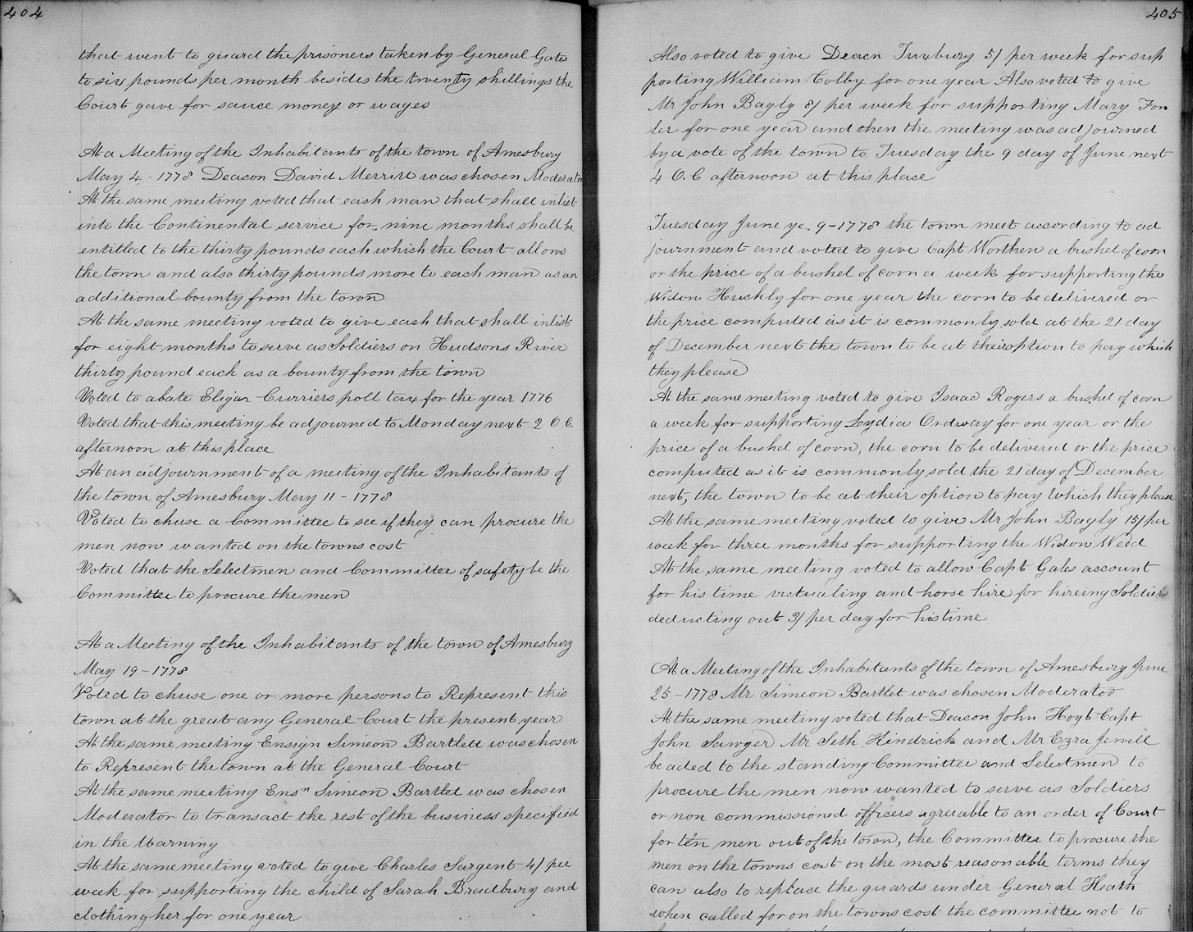 404
that went to guard the prisoners taken by General Gate
to six pounds per month besides the twenty shillings the
Court gave for sauce money or wages
At a Meeting of the Inhabitants of the town of Amesbury
May 4 - 1778 Deacon David Merrill was chosen Moderator
At the same meeting voted that each man that shall inlist
into the Continental service for nine months shall be
entitled to the thirty pounds each which the Court allows
the town and also thirty pounds more to each man as an
additional bounty from the town
At the same meeting voted to give each that shall inlist
for eight months to serve as Soldiers on Hudsons River
thirty pound each as a bounty from the town
Voted to abate Eligar Curriers poll tax for the year 1776
Voted that this meeting be adjourned to Monday next 2 O C.
afternoon at this place
At an adjournment of a meeting of the Inhabitants of
the town of Amesbury May 11 - 1778
Voted to chuse a Committee to see if they can procure the
men now wanted on the towns cost
Voted that the Selectmen and Committee of safety be the
Committee to procure the men
At a Meeting of the Inhabitants of the town of Amesbury
May 19 - 1778
Voted to chuse one or more persons to Represent this
town at the great any General Court the present year
At the same meeting Ensign Simeon Bartlett was chosen
to Represent the town at the General Court
At the same meeting Ensn Simeon Bartlet was chosen
Moderator to transact the rest of the business specified
in the Warning
At the same meeting voted to give Charles Sargent 4/ per
week for supporting the child of Sarah Bradbury and
clothing her for one year
405
Also voted to give Deacn Tuxbury 5/ per week for sup
porting William Colby for one year Also voted to give
Mr John Bagly 8/ per week for supporting Mary Fow
ler for one year and then the meeting was adjourned
by a vote of the town to Tuesday the 9 day of June next
4 O.C afternoon at this place
Tuesday June ye 9 - 1778 the town meet according to ad
journment and voted to give Capt Worthen a bushel of corn
or the price of a bushel of corn a week for supporting the
Widow Huckly for one year the corn to be delivered or
the price computed as it is commonly sold at the 21 day
of December next the town to be at their option to pay which
they please
At the same meeting voted to give Isaac Rogers a bushel of corn
a week for supporting Lydia Ordway for one year or the
price of a bushel of corn, the corn to be delivered or the price
computed as it is commonly sold the 21 day of December
next, the town to be at their option to pay which they please
At the same meeting voted to give Mr John Bagly 15/ per
week for three months for supporting the Widow Weed
At the same meeting voted to allow Capt Gales account
for his time victualing and horse hire for hireing Soldiers
deducting out 3/ per day for his time
At a Meeting of the Inhabitants of the town of Amesbury June
25 - 1778 Mr Simeon Bartlet was chosen Moderator
At the same meeting voted that Deacon John Hoyt Capt
John Sawyer Mr Seth Kindrick and Mr Ezra Jewill
be aded to the standing Committee and Selectmen to
procure the men now wanted to serve as Soldiers
or non commissioned officers agreable to an order of Court
for ten men out of the town, the Committee to procure the
men on the towns cost on the most reasonable terms they
can also to replace the guards under General Heath
when called for on the towns cost the committee not to